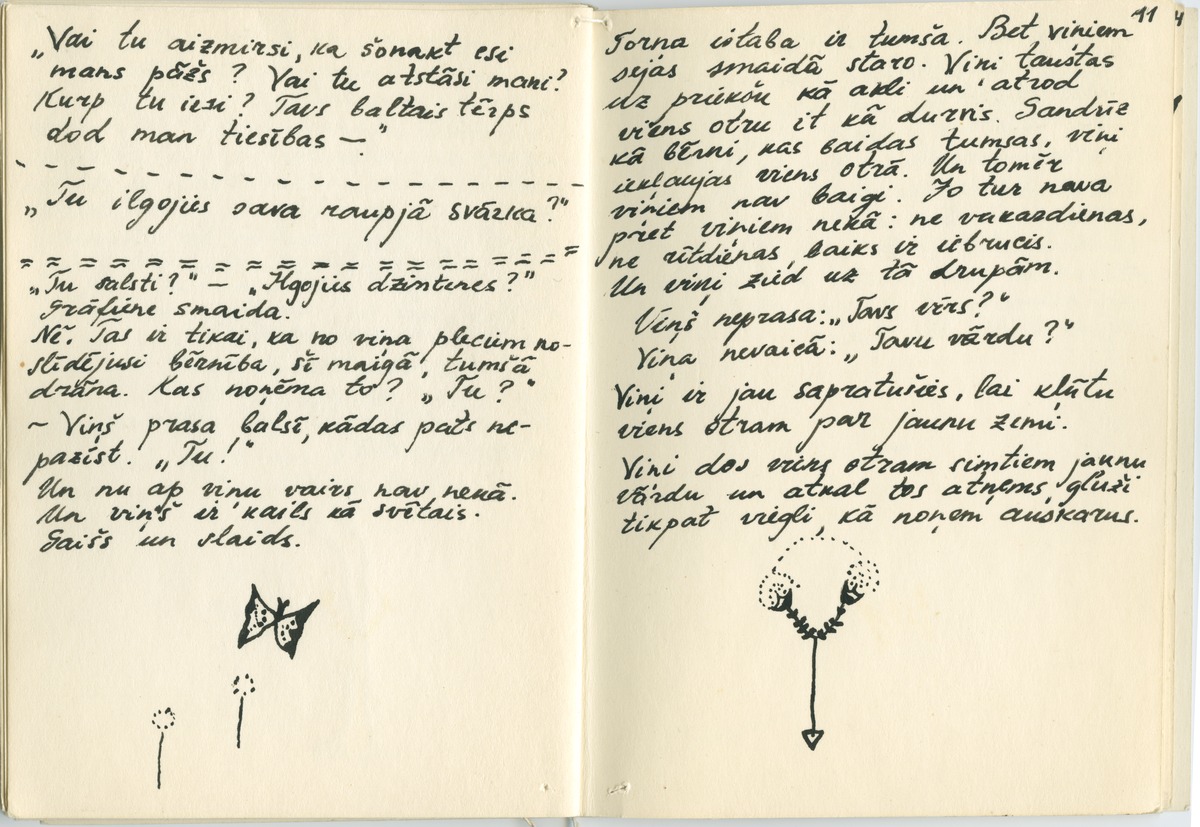 „Vai tu aizmirsi, ka šonakt esi
mans pāžs? Vai tu atstāsi mani?
Kurp tu iesi? Tavs baltais tērps
dod man tiesības —"
„Tu ilgojies sava raupjā svārka?"
„Tu salsti?" — „Ilgojies dzimtenes?"
Grāfiene smaida.
Nē. Tas ir tikai, ka no viņa pleciem no-
slīdējusi bērnība, šī maigā, tumšā
drāna. Kas noņēma to? „Tu?"
~ Viņš prasa balsī, kādas pats ne-
pazīst. „Tu!"
Un nu ap viņu vairs nav nekā.
Un viņš ir kails kā svētais.
Gaišs un slaids.
11
Torņa istaba ir tumša. Bet viņiem
sejas smaidā staro. Viņi taustās
uz priekšu kā akli un atrod
viens otru it kā durvis. Gandrīz
kā bērni, kas baidas tumsas, viņi
iekļaujas viens otrā. Un tomēr
viņiem nav baigi. Jo tur nava
pret viņiem nekā: ne vakardienas,
ne rītdienas, laiks ir iebrucis.
Un viņi zied uz tā drupām.
Viņš neprasa: „Tavs vīrs?"
Viņa nevaicā: „Tavu vārdu?"
Viņi ir jau sapratušies, lai kļūtu
viens otram par jaunu zemi.
Viņi dos viens otram simtiem jaunu
vārdu un atkal tos atņems, gluži
tikpat viegli, kā noņem auskarus.